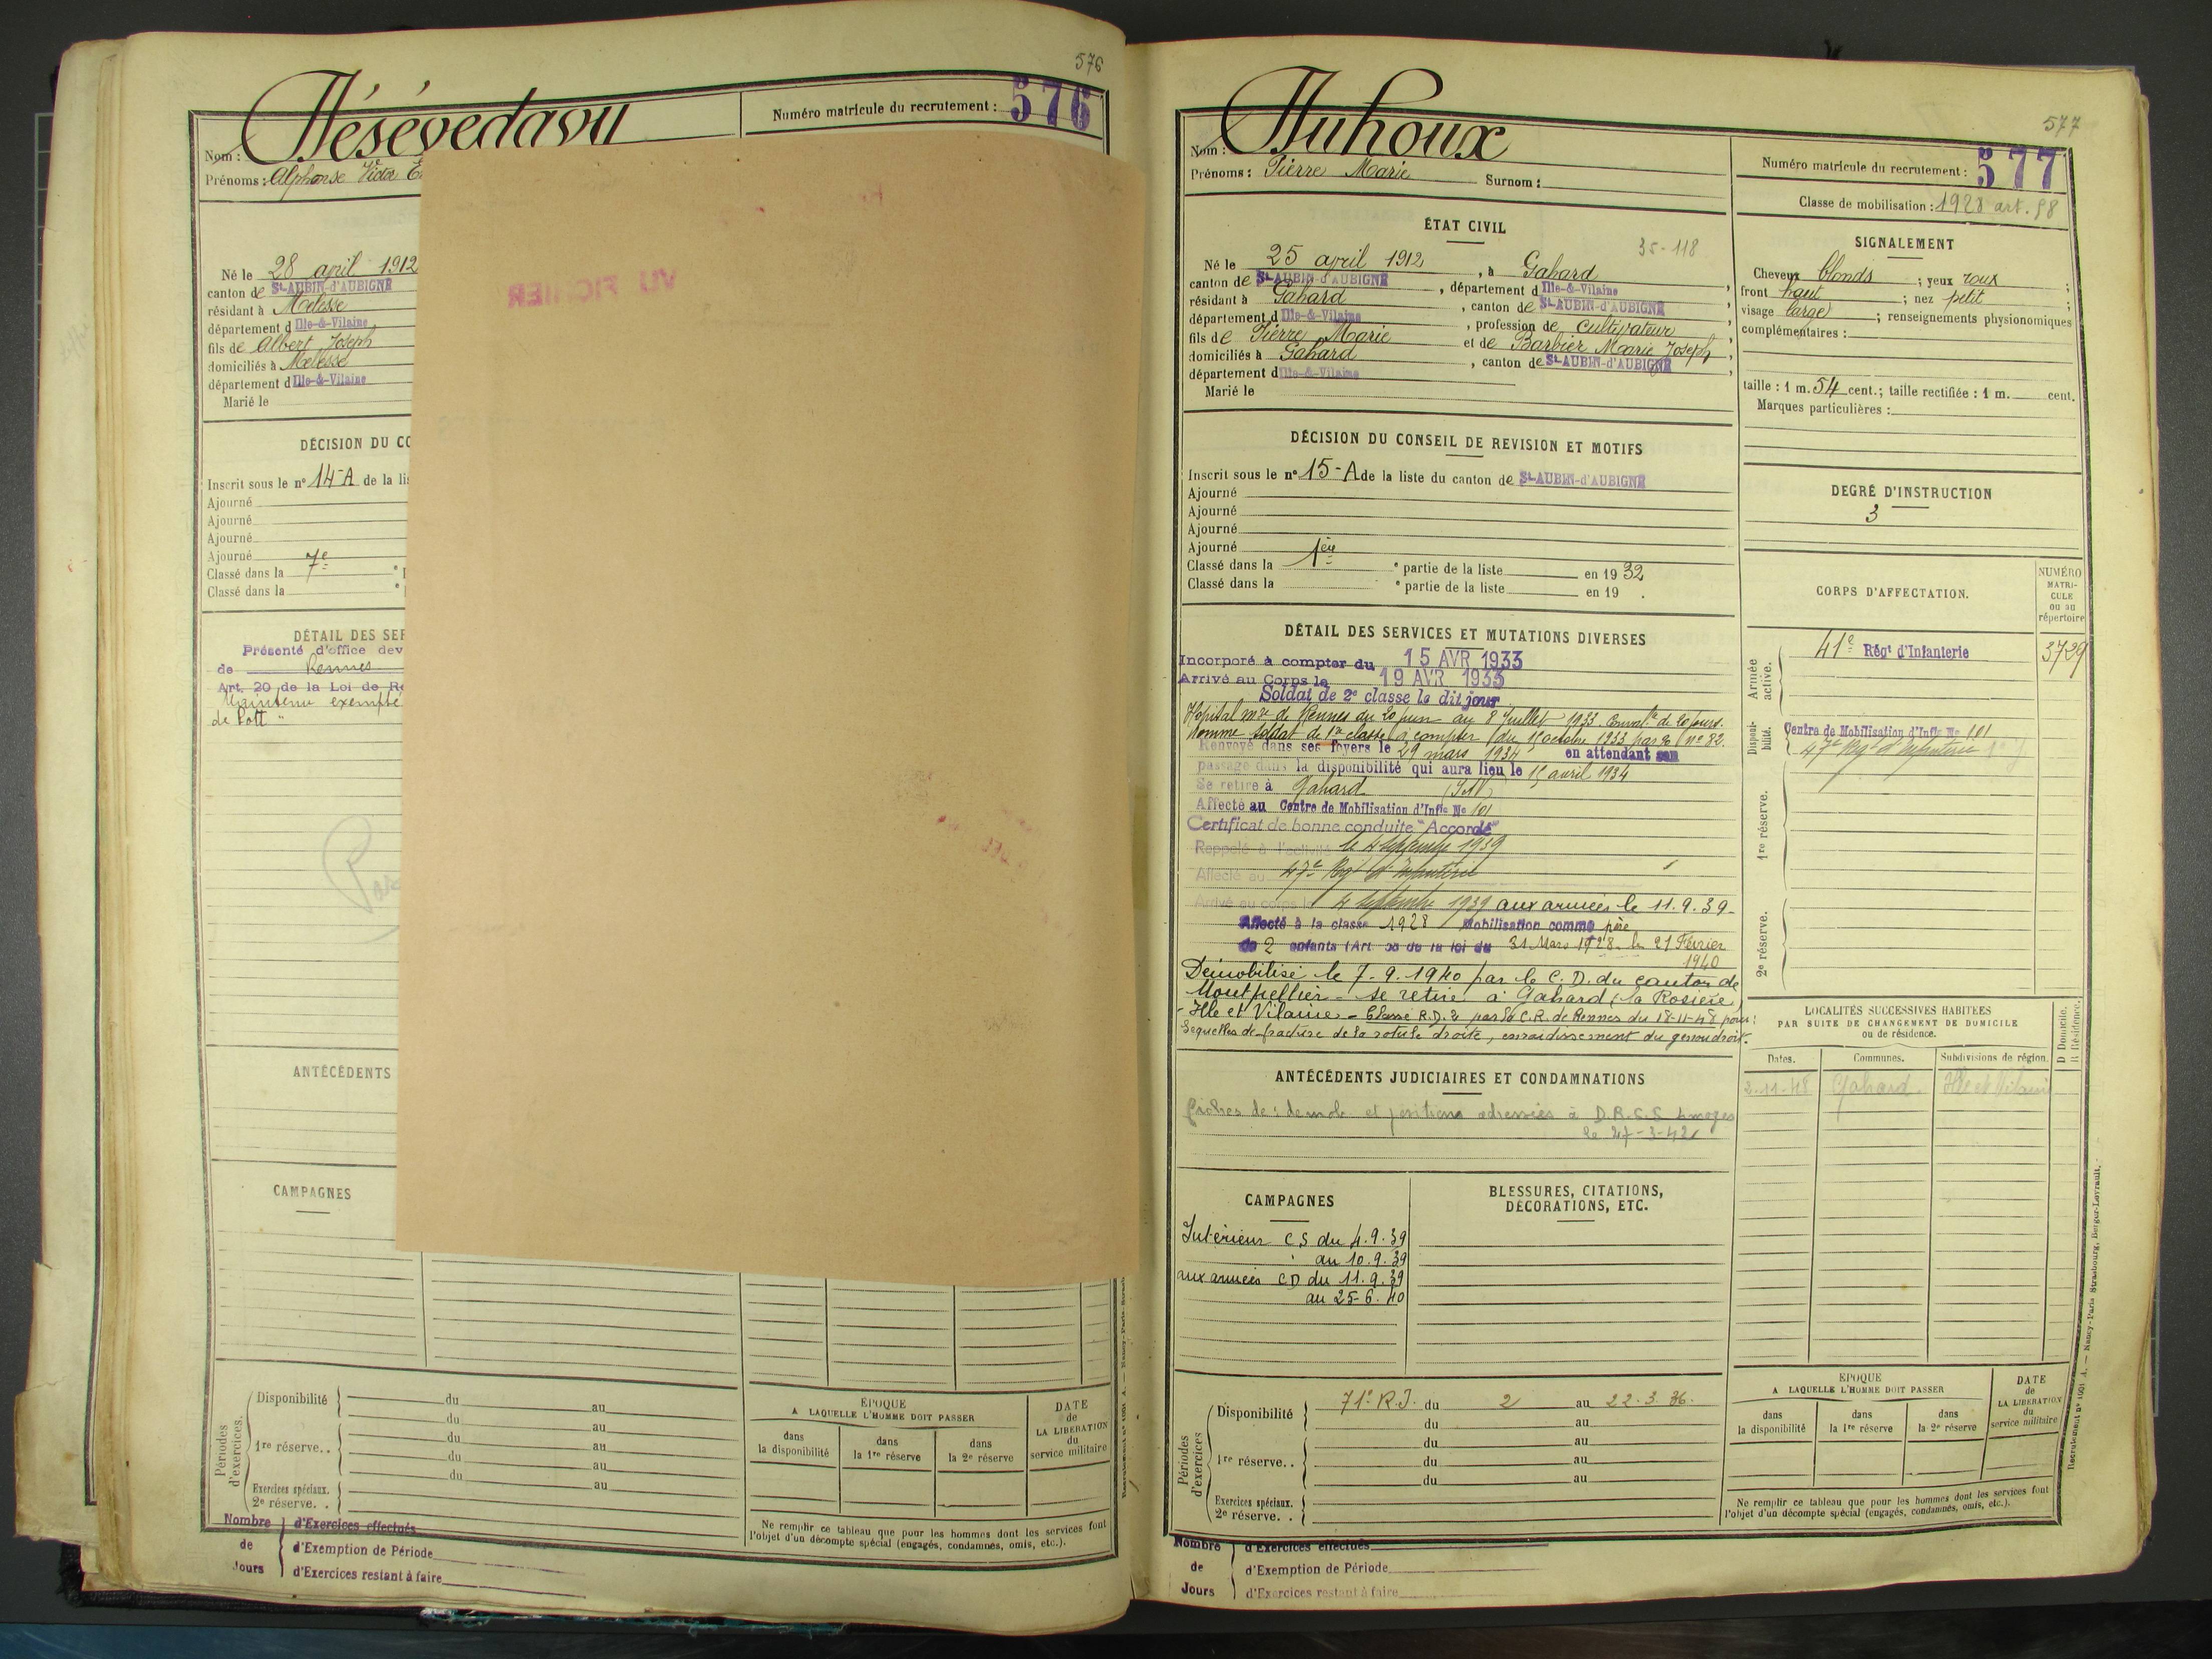 576
Numéro matricule du recrutement : 576
Nom :
Prénoms : Alphonse Victor
Né le 28 april 1912
canton de St-AUBIN-d'AUBIGNÉ
résidant à Melesse
département d Ille-&-Vilaine
fils de Albert Joseph
domiciliés à Melesse
département d Ille-&-Vilaine
Marié le
DÉCISION DU CO
Inscrit sous le n° 14-A de la lis
Ajourné
Ajourné
Ajourné
Ajourné
Classé dans la 7e
Classé dans la
DÉTAIL DES SER
Présenté d'office dev
de Rennes
Art. 20 de la Loi de Re
Maintenu exempté
ANTÉCÉDENTS
CAMPAGNES
VU FICHIER
Périodes d'exercices.
Disponibilité du au
du au
1re réserve.. du au
du au
du au
Exercices spéciaux.
2e réserve. .
ÉPOQUE
A LAQUELLE L'HOMME DOIT PASSER
dans la disponibilité
dans la 1re réserve
dans la 2e réserve
DATE de LA LIBÉRATION du service militaire
Ne remplir ce tableau que pour les hommes dont les services font
l'objet d'un décompte spécial (engagés, condamnés, omis, etc.).
Nombre de Jours
d'Exercices effectués
d'Exemption de Période
d'Exercices restant à faire
577
Nom : Huhoux
Prénoms : Pierre Marie Surnom :
Numéro matricule du recrutement : 577
Classe de mobilisation : 1928 art. 58
ÉTAT CIVIL
35-118
Né le 25 april 1912, à Gahard
canton de St-AUBIN-d'AUBIGNÉ, département d Ille-&-Vilaine,
résidant à Gahard, canton de St-AUBIN-d'AUBIGNÉ,
département d Ille-&-Vilaine, profession de cultivateur,
fils de Pierre Marie et de Barbier Marie Joseph,
domiciliés à Gahard, canton de St-AUBIN-d'AUBIGNÉ,
département d Ille-&-Vilaine
Marié le
SIGNALEMENT
Cheveux blonds ; yeux roux ;
front haut ; nez petit ;
visage large ; renseignements physionomiques
complémentaires :
taille : 1 m. 54 cent.; taille rectifiée : 1 m. cent.
Marques particulières :
DÉCISION DU CONSEIL DE REVISION ET MOTIFS
Inscrit sous le n° 15-A de la liste du canton de St-AUBIN-d'AUBIGNÉ
Ajourné
Ajourné
Ajourné
Ajourné
Classé dans la 1ère e partie de la liste en 1932
Classé dans la e partie de la liste en 19 .
DEGRÉ D'INSTRUCTION
3
DÉTAIL DES SERVICES ET MUTATIONS DIVERSES
Incorporé à compter du 15 AVR 1933
Arrivé au Corps le 19 AVR 1933
Soldat de 2e classe le dit jour
Hôpital mre de Rennes du 20 juin au 8 Juillet 1933. Conval. de 20 jours.
Nommé soldat de 1re classe à compter du 1 octobre 1933 n° 82.
Renvoyé dans ses foyers le 29 mars 1934 en attendant son
passage dans la disponibilité qui aura lieu le 15 avril 1934
Se retire à Gahard (I&V)
Affecté au Centre de Mobilisation d'Infie No 101
Certificat de bonne conduite "Accordé"
Rappelé à l'activité le 4 septembre 1939
Affecté au 47e Rgt d'Infanterie
Arrivé au corps le 4 septembre 1939 aux armées le 11.9.39
Affecté à la classe 1928 Mobilisation comme père
de 2 enfants (Art 58 de la loi du 31 Mars 1928 le 21 Février
1940
Démobilisé le 7.9.1940 par le C.D. du canton de
Montpellier - se retire à Gahard (la Rosière)
- Ille et Vilaine - Classé R.D.2 par la C.R. de Rennes du 18-11-48 pour :
Séquelles de fracture de la rotule droite, enraidissement du genou droit.
CORPS D'AFFECTATION.
NUMÉRO MATRICULE ou au répertoire
Armée active.
41e Régt d'Infanterie 3729
Disponibilité.
Centre de Mobilisation d'Infie No 101
47e Rgt d'Infanterie
1re réserve.
2e réserve.
LOCALITÉS SUCCESSIVES HABITÉES
PAR SUITE DE CHANGEMENT DE DOMICILE
ou de résidence.
D Domicile. R Résidence.
Dates. Communes. Subdivisions de région.
2-11-48 Gahard Ille et Vilaine
ANTÉCÉDENTS JUDICIAIRES ET CONDAMNATIONS
Fiches de démob et positions adressées à D.R.S.S Limoges
le 27-3-42
CAMPAGNES
Intérieur CS du 4.9.39
au 10.9.39
aux armées CD du 11.9.39
au 25-6.40
BLESSURES, CITATIONS,
DÉCORATIONS, ETC.
Périodes d'exercices
Disponibilité 71e R.I. du 2 au 22.3.36.
du au
1re réserve.. du au
du au
du au
Exercices spéciaux.
2e réserve. .
ÉPOQUE
A LAQUELLE L'HOMME DOIT PASSER
dans la disponibilité
dans la 1re réserve
dans la 2e réserve
DATE de LA LIBÉRATION du service militaire
Ne remplir ce tableau que pour les hommes dont les services font
l'objet d'un décompte spécial (engagés, condamnés, omis, etc.).
Recrutement n° 1001 A. — Nancy-Paris-Strasbourg, Berger-Levrault.
Nombre de Jours
d'Exercices effectués
d'Exemption de Période
d'Exercices restant à faire